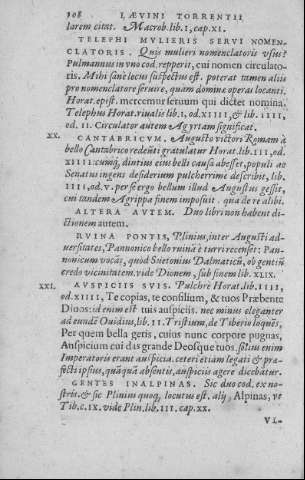 108 LÆVINI TORRENTII
larem citat. Macrob. lib. I, cap. XI.
TELEPHI MVLIERIS SERVI NOMEN-
CLATORIS. Quis mulieri nomenclatoris vsus?
Pulmannus in vno cod. repperit, cui nomen circulato-
ris. Mihi sane locus suspectus est. poterat tamen alius
pro nomenclatore seruire, quam domine operas locanti.
Horat. epist. mercemur seruum qui dictet nomina.
Telephus Horat. riualis lib. I, od. XIIII, & lib. IIII,
od. II. Circulator autem Agyrtam significat.
XX. CANTABRICVM. Augusto victori Romam à
bello Cantabrico redeūti gratulatur Horat. lib. III, od.
XIIII: cumq́, diutius eius belli causa abesset, populi ac
Senatus ingens desiderium pulcherrime describit, lib.
IIII, od. V. per se ergo bellum illud Augustus gessit,
cui tandem Agrippa finem imposuit. qua de re alibi.
ALTERA AVTEM. Duo libri non habent di-
ctionem autem.
RVINA PONTIS, Plinius, inter Augusti ad-
uersitates, Pannonico bello ruina è turri recenset: Pan-
nonicum vocās, quod Suetonius Dalmaticū, ob gentiū
credo vicinitatem. vide Dionem, sub finem lib. XLIX.
XXI. AVSPICIIS SVIS. Pulchrè Horat. lib. IIII,
od. XIIII, Te copias, te consilium, & tuos Præbente
Diuos: id enim est tuis auspiciis. nec minus eleganter
ad eundē Ouidius, lib. II Tristium, de Tiberio loquēs,
Per quem bella geris, cuius nunc corpore pugnas,
Auspicium cui das grande Deosque tuos. solius enim
Imperatoris erant auspicia. ceteri etiam legati & præ-
fecti ipsius, quāquā absentis, auspiciis agere dicebātur.
GENTES INALPINAS. Sic duo cod. ex no-
stris. & sic Plinius quoq, locutus est. alij, Alpinas, vt
Tib. c. IX. vide Plin. lib. III. cap. XX.
VI-